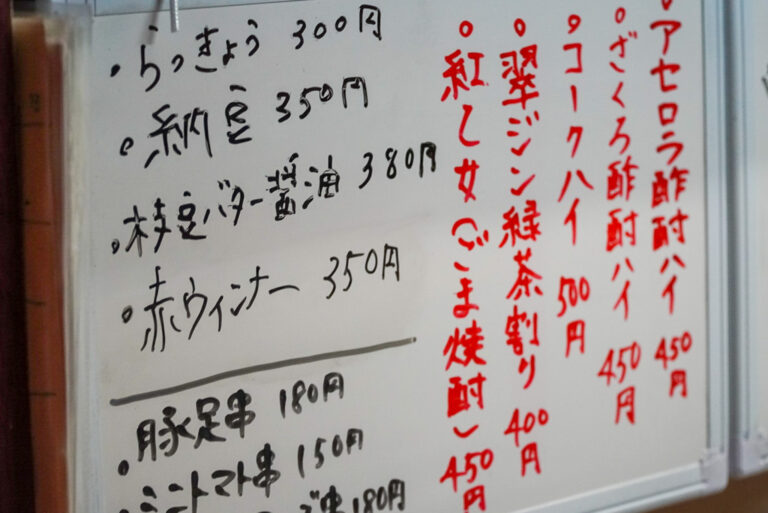 ・らっきょう 300円
・納豆 350円
・枝豆バター醤油 380円
・赤ウィンナー 350円
・豚足串 180円
・ミニトマト串 150円
串 180円
・アセロラ酢酎ハイ 450円
・ざくろ酢酎ハイ 450円
・コークハイ 500円
・翠ジン緑茶割り 400円
・紅乙女(ごま焼酎) 450円